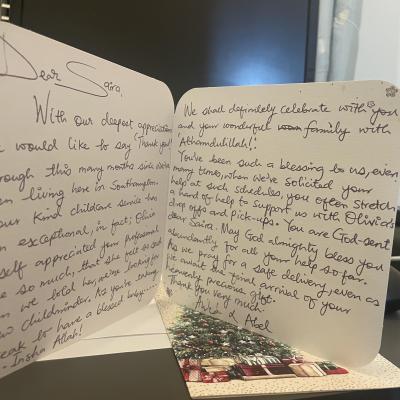 Dear Saira,
With our deepest appreciation
we would like to say 'Thank you'
through this many months since
been living here in Southampton.
our kind childcare service has
been exceptional, in fact; Olivia
self appreciated your professional
so much, that she felt so sad
when we told her, we're looking for
childminder. As you're taking
break to have a blessed baby....
- Insha Allah!
We shall definitely celebrate with you
and your wonderful family with
'Alhamdulillah!'
You've been such a blessing to us, even
many times, when we've solicited your
help at such schedules, you often stretch
a hand of help to support us with Olivia's
drop offs and pick-ups. You are God-sent
dear Saira. May God almighty bless you
abundantly for all your help so far.
As we pray for a safe delivery, even as
we await the final arrival of your
heavenly precious gift.
Thank you very much.
& Abel